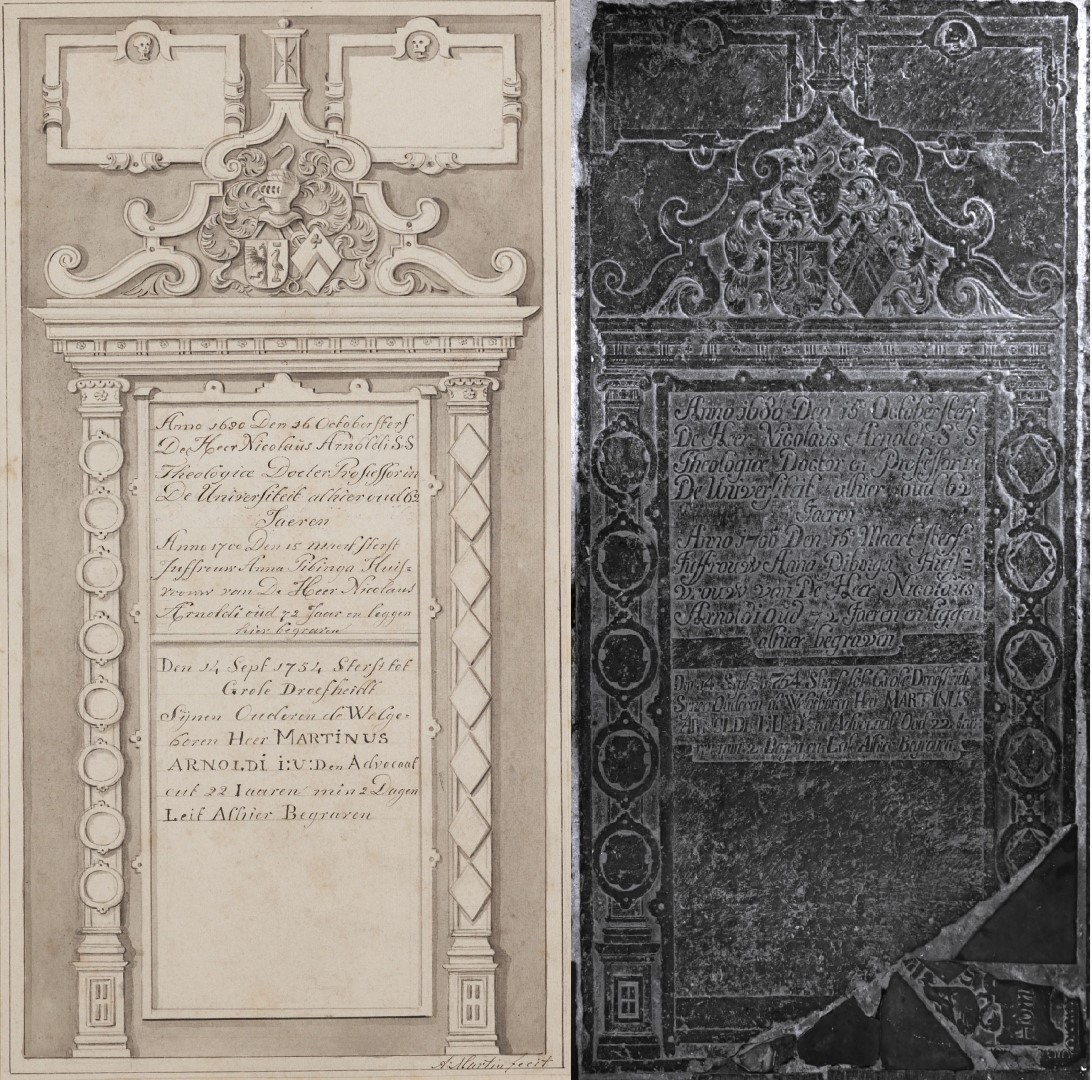 Anno 1680 Den 16 October sterf
De Heer Nicolaüs Arnoldi S.S
Theologiæ Docter Professor in
De Universiteit alhier oud 62
Jaeren
Anno 1700 Den 15 Maert sterft
Juffrouw Anna Pibinga Huis-
vrouw van De Heer Nicolaus
Arnoldi oud 72 Jaar en leggen
hier begraven
Den 14 Sept 1754 Sterft tot
Grote Droefheidt
Sijnen Ouderen de Welge-
boren Heer MARTINUS
ARNOLDI i:U:D en Advocaat
out 22 Iaaren min 2 Dagen
Leit Alhier Begraven
A: Martin fecit
Anno 1680 Den 15 October sterf
De Heer Nicolaus Arnoldi S S
Theologiæ Doctor en Professor in
De Universiteit alhier oud 62
Jaeren
Anno 1700 Den 15 Maert sterf
Juffrouw Anna Pibinga Huis=
vrouw van De Heer Nicolaus
Arnoldi oud 72 Jaeren en liggen
alhier begraven
1754 Sterft tot Grote Droefheidt
Ouderen de Welgeboren Heer MARTINUS
ARNOLDI en Advocaat Oud 22 Iaa
min 2 Dagen en Leit Alhier Begraven